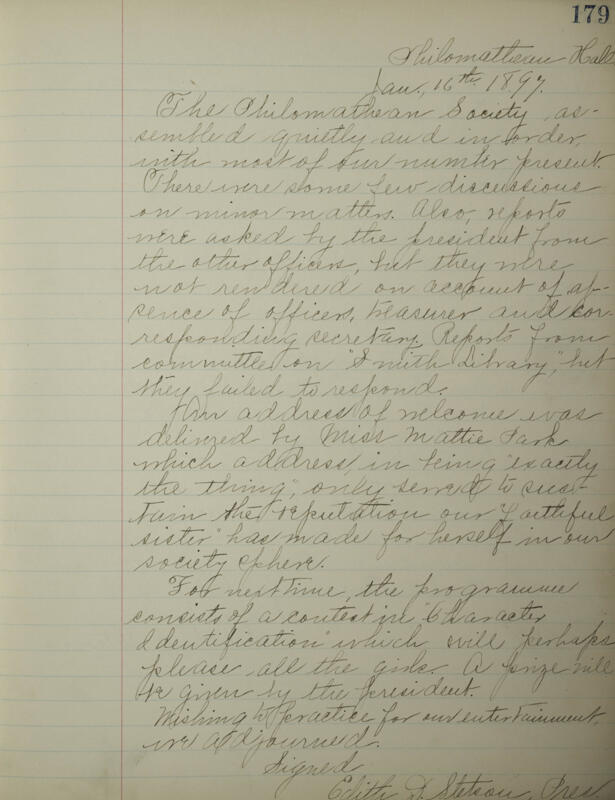 179
Philomathean Hall
Jan., 16th 1897.
The Philomathean Society as-
sembled quietly and in order,
with most of our number present.
There were some few discussions
on minor matters. Also, reports
were asked by the president from
the other officers, but they were
not rendered on account of ab-
sence of officers, treasurer and cor-
responding secretary. Reports from
committee on "Smith Library", but
they failed to respond.
An address of welcome was
delivered by Miss Mattie Park
which address, in being "exactly
the thing", only served to sus-
tain the reputation our "faithful
sister" has made for herself in our
society sphere.
For next time, the programme
consists of a contest in "Character
Identification" which will perhaps
please all the girls. A prize will
be given by the president.
Wishing to practice for our entertainment,
we adjourned.
Signed
Edith D. Stetson, Pres.